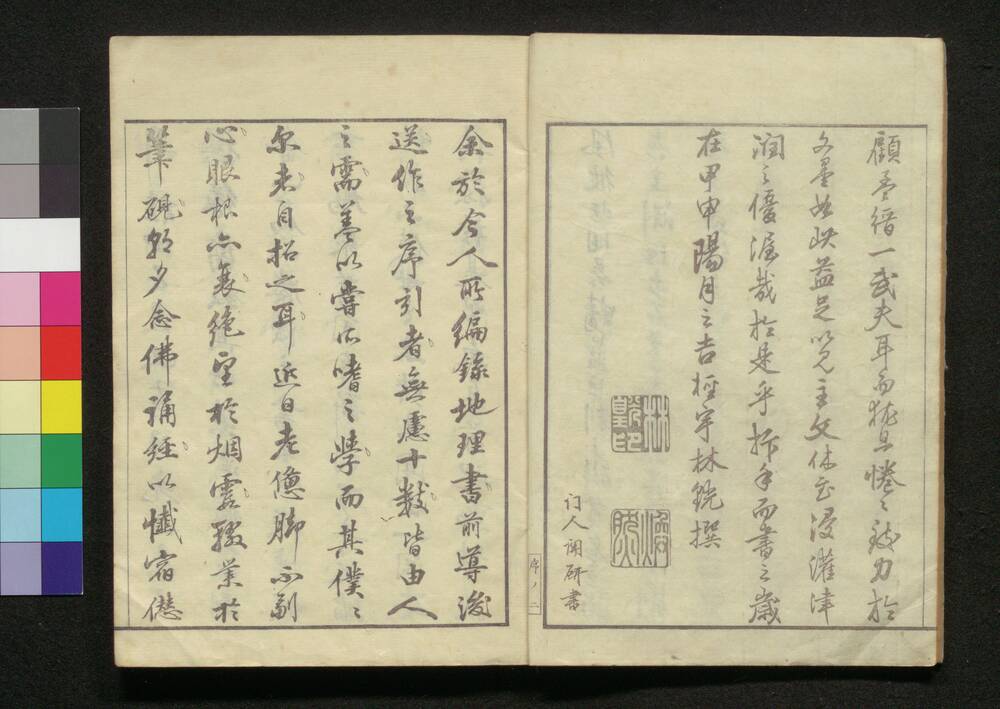 顧吾縉一武夫耳而猶且惓〻致力於
文墨如此益足以見主文休 浸灌津
潤之優渥哉於是乎拆手而書之歳
在甲申陽月之吉檉宇林銑撰
门人關研書
序ノ二
余於今人所編録地理書前導後
送作之序引者無慮十數皆由人
之需蓋以嘗所嗜之學而其僕〻
尔者自招之耳近日老憊脚不副
心眼根亦衰絶望於烟雲輟業於
筆硯朝夕念佛誦經以懺宿愆